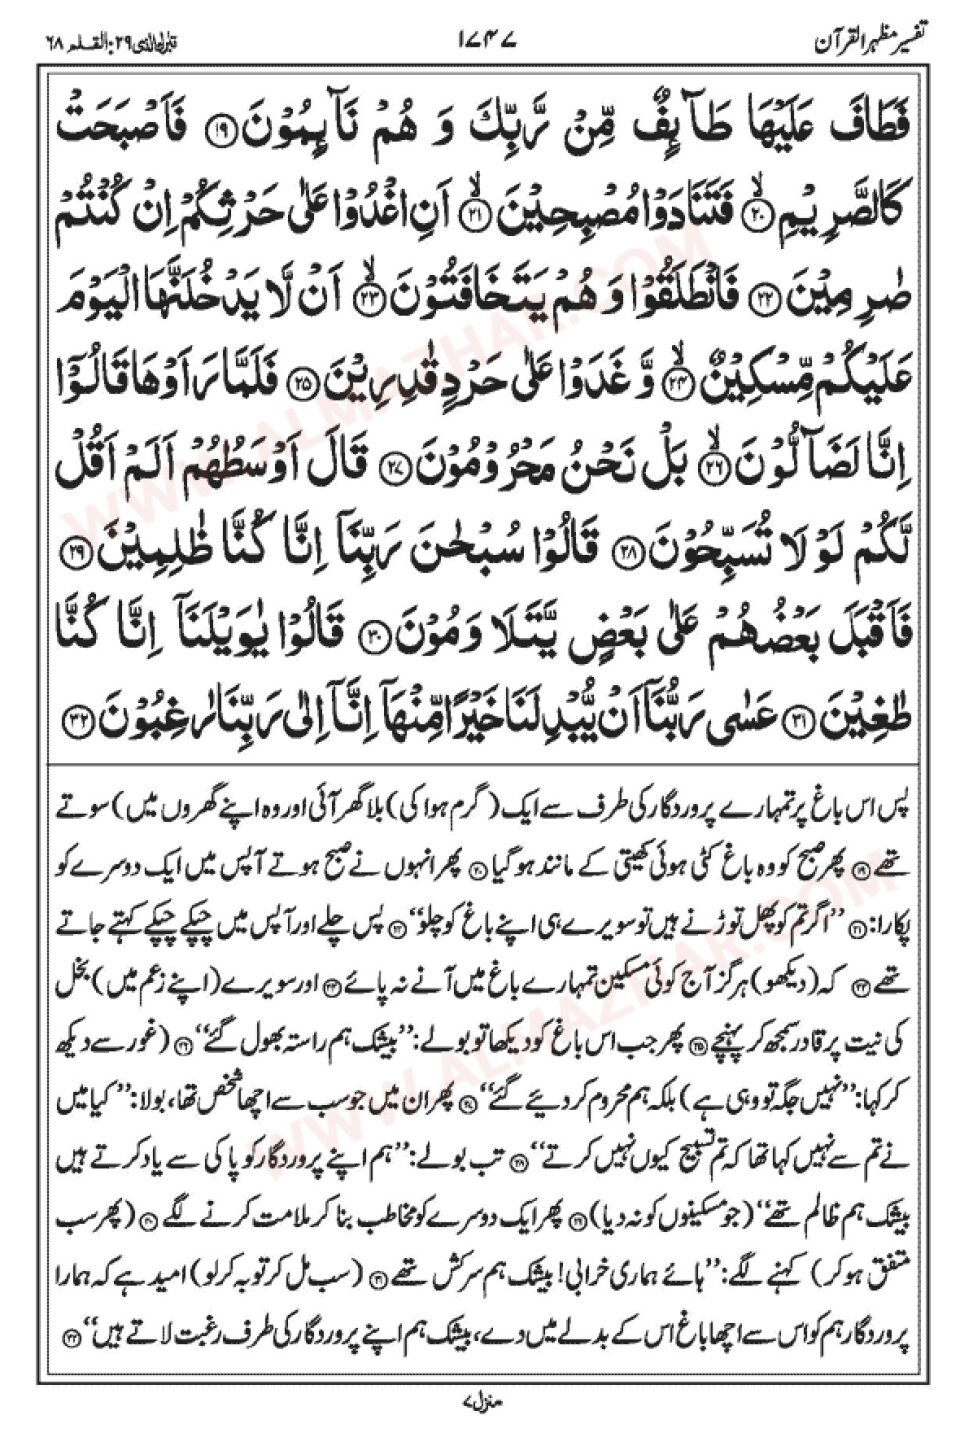 تفسیر مظہر القرآن
۱۷۴۷
تبٰرك الذی ۲۹: القلم ۶۸
فَطَافَ عَلَيْهَا طَآئِفٌ مِّنْ رَّبِّكَ وَ هُمْ نَآئِمُوْنَ ۝۱۹ فَاَصْبَحَتْ
كَالصَّرِيْمِ ۝۲۰ۙ فَتَنَادَوْا مُصْبِحِيْنَ ۝۲۱ۙ اَنِ اغْدُوْا عَلٰى حَرْثِكُمْ اِنْ كُنْتُمْ
صٰرِمِيْنَ ۝۲۲ فَانْطَلَقُوْا وَ هُمْ يَتَخَافَتُوْنَ ۝۲۳ۙ اَنْ لَّا يَدْخُلَنَّهَا الْيَوْمَ
عَلَيْكُمْ مِّسْكِيْنٌ ۝۲۴ۙ وَّ غَدَوْا عَلٰى حَرْدٍ قٰدِرِيْنَ ۝۲۵ فَلَمَّا رَاَوْهَا قَالُوْۤا
اِنَّا لَضَآلُّوْنَ ۝۲۶ۙ بَلْ نَحْنُ مَحْرُوْمُوْنَ ۝۲۷ قَالَ اَوْسَطُهُمْ اَلَمْ اَقُلْ
لَّكُمْ لَوْ لَا تُسَبِّحُوْنَ ۝۲۸ قَالُوْا سُبْحٰنَ رَبِّنَاۤ اِنَّا كُنَّا ظٰلِمِيْنَ ۝۲۹
فَاَقْبَلَ بَعْضُهُمْ عَلٰى بَعْضٍ يَّتَلَاوَمُوْنَ ۝۳۰ قَالُوْا يٰوَيْلَنَاۤ اِنَّا كُنَّا
طٰغِيْنَ ۝۳۱ عَسٰى رَبُّنَاۤ اَنْ يُّبْدِلَنَا خَيْرًا مِّنْهَاۤ اِنَّاۤ اِلٰى رَبِّنَا رٰغِبُوْنَ ۝۳۲
پس اس باغ پر تمہارے پروردگار کی طرف سے ایک (گرم ہوا کی) بلا گھر آئی اور وہ اپنے گھروں میں) سوتے
تھے ۝۱۹ پھر صبح کو وہ باغ کٹی ہوئی کھیتی کے مانند ہو گیا ۝۲۰ پھر انہوں نے صبح ہوتے آپس میں ایک دوسرے کو
پکارا: ۝۲۱ ’’اگر تم کو پھل توڑنے ہیں تو سویرے ہی اپنے باغ کو چلو‘‘ ۝۲۲ پس چلے اور آپس میں چپکے چپکے کہتے جاتے
تھے ۝۲۳ کہ (دیکھو) ہرگز آج کوئی مسکین تمہارے باغ میں آنے نہ پائے ۝۲۴ اور سویرے (اپنے زعم میں) بخل
کی نیت پر قادر سمجھ کر پہنچے ۝۲۵ پھر جب اس باغ کو دیکھا تو بولے: ’’بیشک ہم راستہ بھول گئے‘‘ ۝۲۶ (غور سے دیکھ
کر کہا: ’’نہیں جگہ تو وہی ہے) بلکہ ہم محروم کر دیئے گئے‘‘ ۝۲۷ پھر ان میں جو سب سے اچھا شخص تھا، بولا: ’’کیا میں
نے تم سے نہیں کہا تھا کہ تم تسبیح کیوں نہیں کرتے‘‘ ۝۲۸ تب بولے: ’’ہم اپنے پروردگار کو پاکی سے یاد کرتے ہیں
بیشک ہم ظالم تھے‘‘ (جو مسکینوں کو نہ دیا) ۝۲۹ پھر ایک دوسرے کو مخاطب بنا کر ملامت کرنے لگے ۝۳۰ (پھر سب
متفق ہو کر) کہنے لگے: ’’ہائے ہماری خرابی! بیشک ہم سرکش تھے ۝۳۱ (سب مل کر توبہ کر لو) امید ہے کہ ہمارا
پروردگار ہم کو اس سے اچھا باغ اس کے بدلے میں دے، بیشک ہم اپنے پروردگار کی طرف رغبت لاتے ہیں‘‘ ۝۳۲
منزل ۷
WWW.ALMAZHAR.COM
WWW.ALMAZHAR.COM